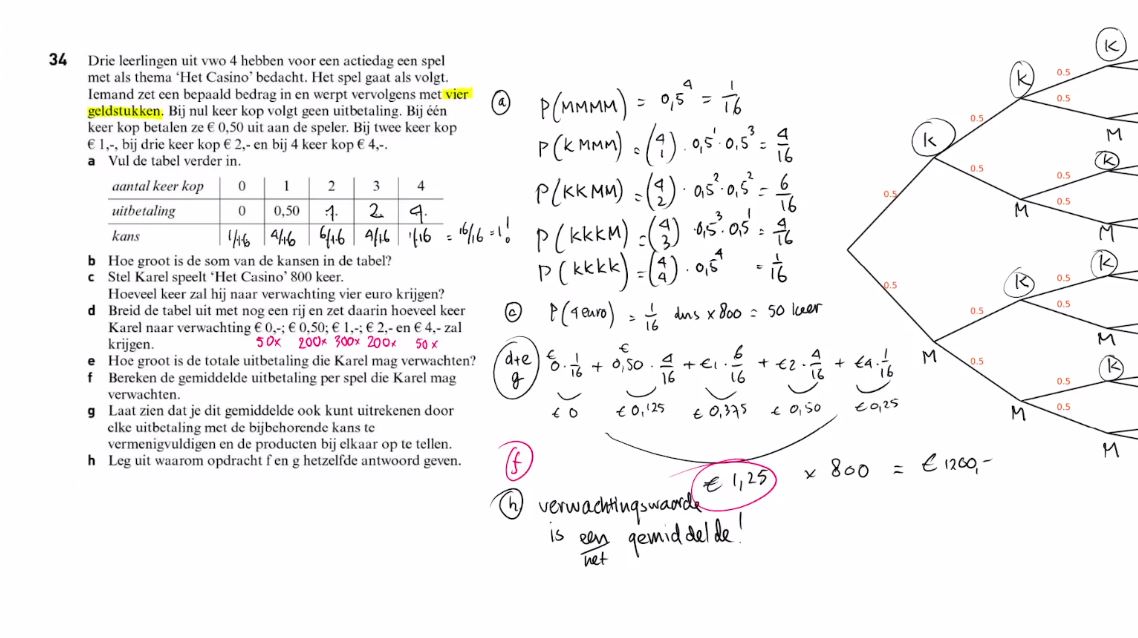 34 Drie leerlingen uit vwo 4 hebben voor een actiedag een spel
met als thema 'Het Casino' bedacht. Het spel gaat als volgt.
Iemand zet een bepaald bedrag in en werpt vervolgens met vier
geldstukken. Bij nul keer kop volgt geen uitbetaling. Bij één
keer kop betalen ze € 0,50 uit aan de speler. Bij twee keer kop
€ 1,-, bij drie keer kop € 2,- en bij 4 keer kop € 4,-.
a Vul de tabel verder in.
aantal keer kop 0 1 2 3 4
uitbetaling 0 0,50 1. 2 4.
kans 1/16 4/16 6/16 4/16 1/16 = 16/16 = 1!
b Hoe groot is de som van de kansen in de tabel?
c Stel Karel speelt 'Het Casino' 800 keer.
Hoeveel keer zal hij naar verwachting vier euro krijgen?
d Breid de tabel uit met nog een rij en zet daarin hoeveel keer
Karel naar verwachting € 0,-; € 0,50; € 1,-; € 2,- en € 4,- zal
krijgen. 50x 200x 300x 200x 50x
e Hoe groot is de totale uitbetaling die Karel mag verwachten?
f Bereken de gemiddelde uitbetaling per spel die Karel mag
verwachten.
g Laat zien dat je dit gemiddelde ook kunt uitrekenen door
elke uitbetaling met de bijbehorende kans te
vermenigvuldigen en de producten bij elkaar op te tellen.
h Leg uit waarom opdracht f en g hetzelfde antwoord geven.
a P(MMMM) = 0,5^4 = 1/16
P(KMMM) = (4 1) · 0,5^1 · 0,5^3 = 4/16
P(KKMM) = (4 2) · 0,5^2 · 0,5^2 = 6/16
P(KKKM) = (4 3) · 0,5^3 · 0,5^1 = 4/16
P(KKKK) = (4 4) · 0,5^4 = 1/16
c P(4 euro) = 1/16 dus x 800 = 50 keer
d+e g €0 · 1/16 + €0,50 · 4/16 + €1 · 6/16 + €2 · 4/16 + €4 · 1/16
€ 0 € 0,125 € 0,375 € 0,50 € 0,25
f € 1,25 x 800 = € 1200,-
h verwachtingswaarde
is een gemiddelde!
het
K
0.5
K
0.5
0.5
M
K
0.5
0.5
K
0.5
0.5
M
M
0.5
K
0.5
K
0.5
0.5
M
M
0.5
K
0.5
M
0.5
M